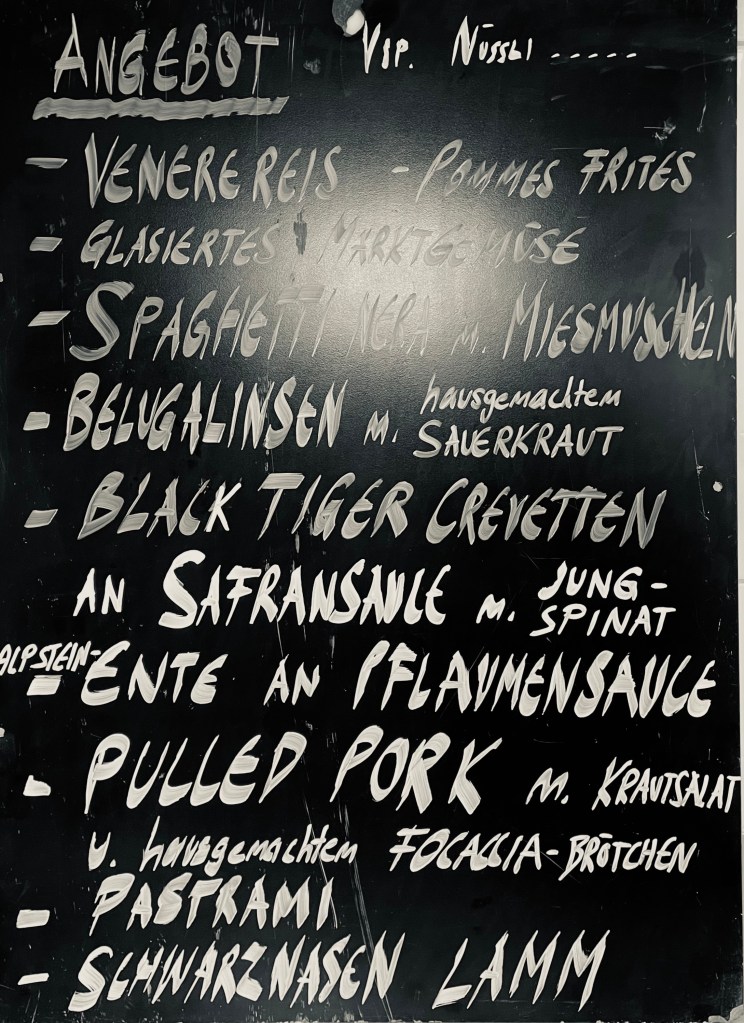 ANGEBOT VSP. NÜSSLI .....
- VENEREREIS - POMMES FRITES
- GLASIERTES MARKTGEMÜSE
- SPAGHETTI NERA M. MIESMUSCHELN
- BELUGALINSEN M. hausgemachtem
SAUERKRAUT
- BLACK TIGER CREVETTEN
AN SAFRANSAUCE M. JUNG-
SPINAT
ALPSTEIN-
- ENTE AN PFLAUMENSAUCE
- PULLED PORK M. KRAUTSALAT
U. hausgemachtem FOCACCIA-BRÖTCHEN
- PASTRAMI
- SCHWARZNASEN LAMM